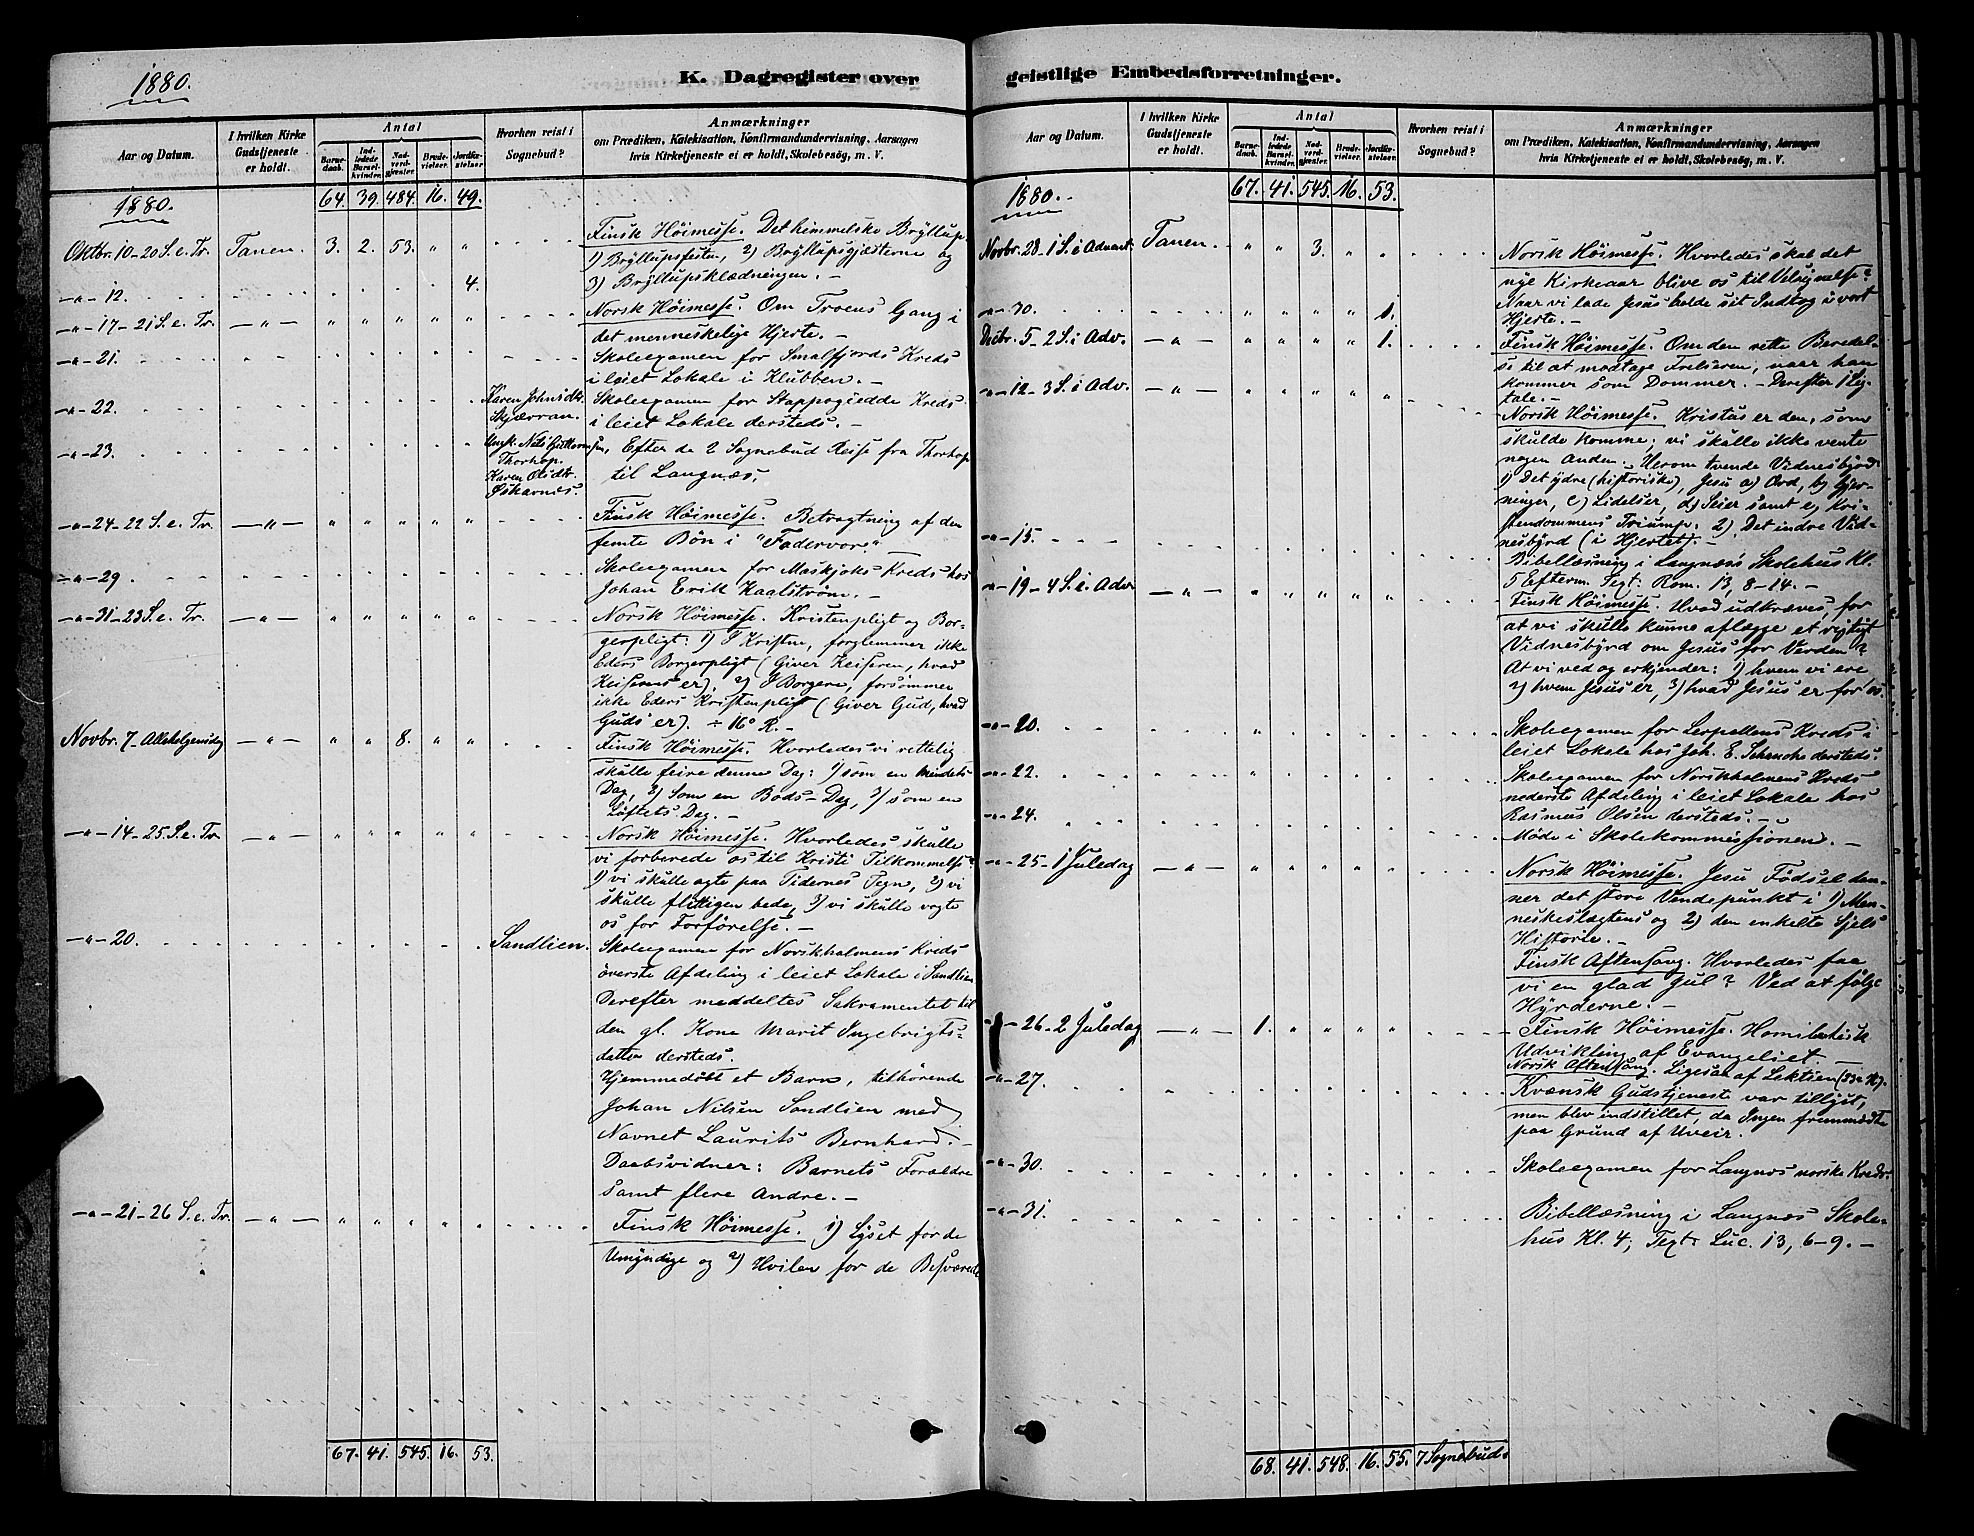 1880.
K. Dagregister over
Aar og Datum.
I hvilken Kirke Gudstjeneste er holdt.
Antal
Barnedaab.
Indledede Barselkvinder.
Nadverdgjæster.
Brudevielser.
Jordfæstelser.
Hvorhen reist i Sognebud?
Anmærkninger
om Prædiken, Katekisation, Konfirmandundervisning, Aarsagen
hvis Kirketjeneste ei er holdt, Skolebesög, m. V.
64. 39. 484. 16. 49.
1880.
Oktbr. 10 - 20 S. e. Tr. Tanen. 3. 2. 53. " "
Finsk Höimesse. Det himmelske Bryllup.
1) Bryllupsfesten, 2) Bryllupsgjæsterne og
3) Bryllupsklædningen. -
-"- 12. 4.
-"- 17 - 21 S. e. Tr. -"- " " " " "
Norsk Höimesse. Om Troens Gang i
det menneskelige Hjerte. -
-"- 21.
Skoleexamen for Smalfjords Kreds
i leiet Lokale i Klubben. -
-"- 22. Karen Johnsdtr. Skjærran.
Skoleexamen for Stappogiedde Kreds
i leiet Lokale dersteds. -
-"- 23. Ungk. Nils Guttormsen, Thorhop. Karen Olsdtr.
Efter de 2 Sognebud Reise fra Thorhop
til Langnæs.
-"- 24 - 22 S. e. Tr. -"- " " " " "
Finsk Höimesse. Betragtning af den
femte Bön i "Fadervor". -
-"- 29.
Skoleexamen for Maskjoks Kreds hos
Johan Erik Kaalström. -
-"- 31 - 23 S. e. Tr. -"- " " " " "
Norsk Höimesse. Kristenpligt og Bor-
gerpligt: 1) I Kristne, forglemmer ikke
Eders Borgerpligt (Giver Keiseren, hvad
Keiserens er), 2) I Borgere, forsömmer
ikke Eders Kristenpligt (Giver Gud, hvad
Guds er). ÷ 16° R. -
Novbr. 7 - Allehelgensdag -"- " " 8. " "
Finsk Höimesse. Hvorledes vi rettelig
skulle feire denne Dag: 1) som en Mindets
Dag, 2) Som en Bods-Dag, 3) som en
Löftets Dag. -
-"- 14 - 25. S. e. Tr. -"- " " " " "
Norsk Höimesse. Hvorledes skulle
vi forberede os til Kristi Tilkommelse?
1) vi skulle agte paa Tidernes Tegn, 2) vi
skulle flittigen bede, 3) vi skulle vogte
os for Forförelse. -
-"- 20. Sandlien.
Skoleexamen for Norskholmens Kreds
överste Afdeling i leiet Lokale i Sandlien
Derefter meddeltes Sakramentet til
den gl. Kone Marit Ingebrigts-
datter dersteds.
Hjemmedöbt et Barn, tilhörende
Johan Nilsen Sandlien med
Navnet Laurits Bernhard. -
Daabsvidner: Barnets Forældre
samt flere Andre. -
-"- 21 - 26 S. e. Tr. -"- " " " " "
Finsk Höimesse. 1) Lyset for de
Umyndige og 2) Hvilen for de Besværede
67. 41. 545. 16. 53.
geistlige Embedsforretninger.
Aar og Datum.
I hvilken Kirke Gudstjeneste er holdt.
Antal
Barnedaab.
Indledede Barselkvinder.
Nadverdgjæster.
Brudevielser.
Jordfæstelser.
Hvorhen reist i Sognebud?
Anmærkninger
om Prædiken, Katekisation, Konfirmandundervisning, Aarsagen
hvis Kirketjeneste ei er holdt, Skolebesög, m. V.
67. 41. 545. 16. 53.
1880.
Novbr. 28 - 1 S. i Advent. Tanen. " " 3. " "
Norsk Höimesse. Hvorledes skal det
nye Kirkeaar blive os til Velsignelse?
Naar vi lade Jesus holde sit Indtog i vort
Hjerte. -
-"- 30. " " " " 1.
Decbr. 5 - 2 S. i Adv. -"- " " " " 1.
Finsk Höimesse. Om den rette Beredel-
se til at modtage Frelseren, naar han
kommer som Dommer. - Derefter 1 Lig-
tale. -
-"- 12 - 3 S. i Adv. -"- " " " " "
Norsk Höimesse. Kristus er den, som
skulde komme; vi skulle ikke vente
nogen Anden. Herom tvende Vidnesbyrd:
1) Det ydre (historiske), Jesu a) Ord, b) Gjer-
ninger, c) Lidelser, d) Seier samt e) Kri-
stendommens Triumf. 2) Det indre Vid-
nesbyrd (i Hjertet). -
-"- 15.
Bibellæsning i Langnæs Skolehus Kl.
5 Efterm. Text: Rom. 13, 8-14. -
-"- 19 - 4 S. i. Adv. -"- " " " " "
Finsk Höimesse. Hvad udkræves, for
at vi skulle kunne aflægge et rigtigt
Vidnesbyrd om Jesus for Verden?
At vi ved og erkjender: 1) hvem vi ere
2) hvem Jesus er, 3) hvad Jesus er for os.
-"- 20.
Skoleexamen for Lerpollens Kreds i
leiet Lokale hos Joh. E. Schanche dersteds.
-"- 22.
Skoleexamen for Norskholmens Kreds
nederste Afdeling i leiet Lokale hos
Rasmus Olsen dersteds. -
-"- 24.
Möde i Skolekommissionen. -
-"- 25 - 1 Juledag -"- " " " " "
Norsk Höimesse. Jesu Födsel dan-
ner det store Vendepunkt i 1) Men-
neskeslægtens og 2) den enkelte Sjels
Historie. -
Finsk Aftensang. Hvorledes faa
vi en glad Jul? Ved at fölge
Hyrderne. -
-"- 26 - 2 Juledag -"- 1. " " " "
Finsk Höimesse. Homiletisk
Udvikling af Evangeliet. -
Norsk Aftensang. Ligesaa af Lektien
-"- 27.
Kvænsk Gudstjeneste var tillyst,
men blev indstillet, da Ingen fremmödte
paa Grund af Uveir.
-"- 30.
Skoleexamen for Langnæs norske Kreds.
-"- 31.
Bibellæsning i Langnæs Skole-
hus Kl. 4; Text: Luc. 13, 6-9. -
68. 41. 548. 16. 55. 7 Sognebud.